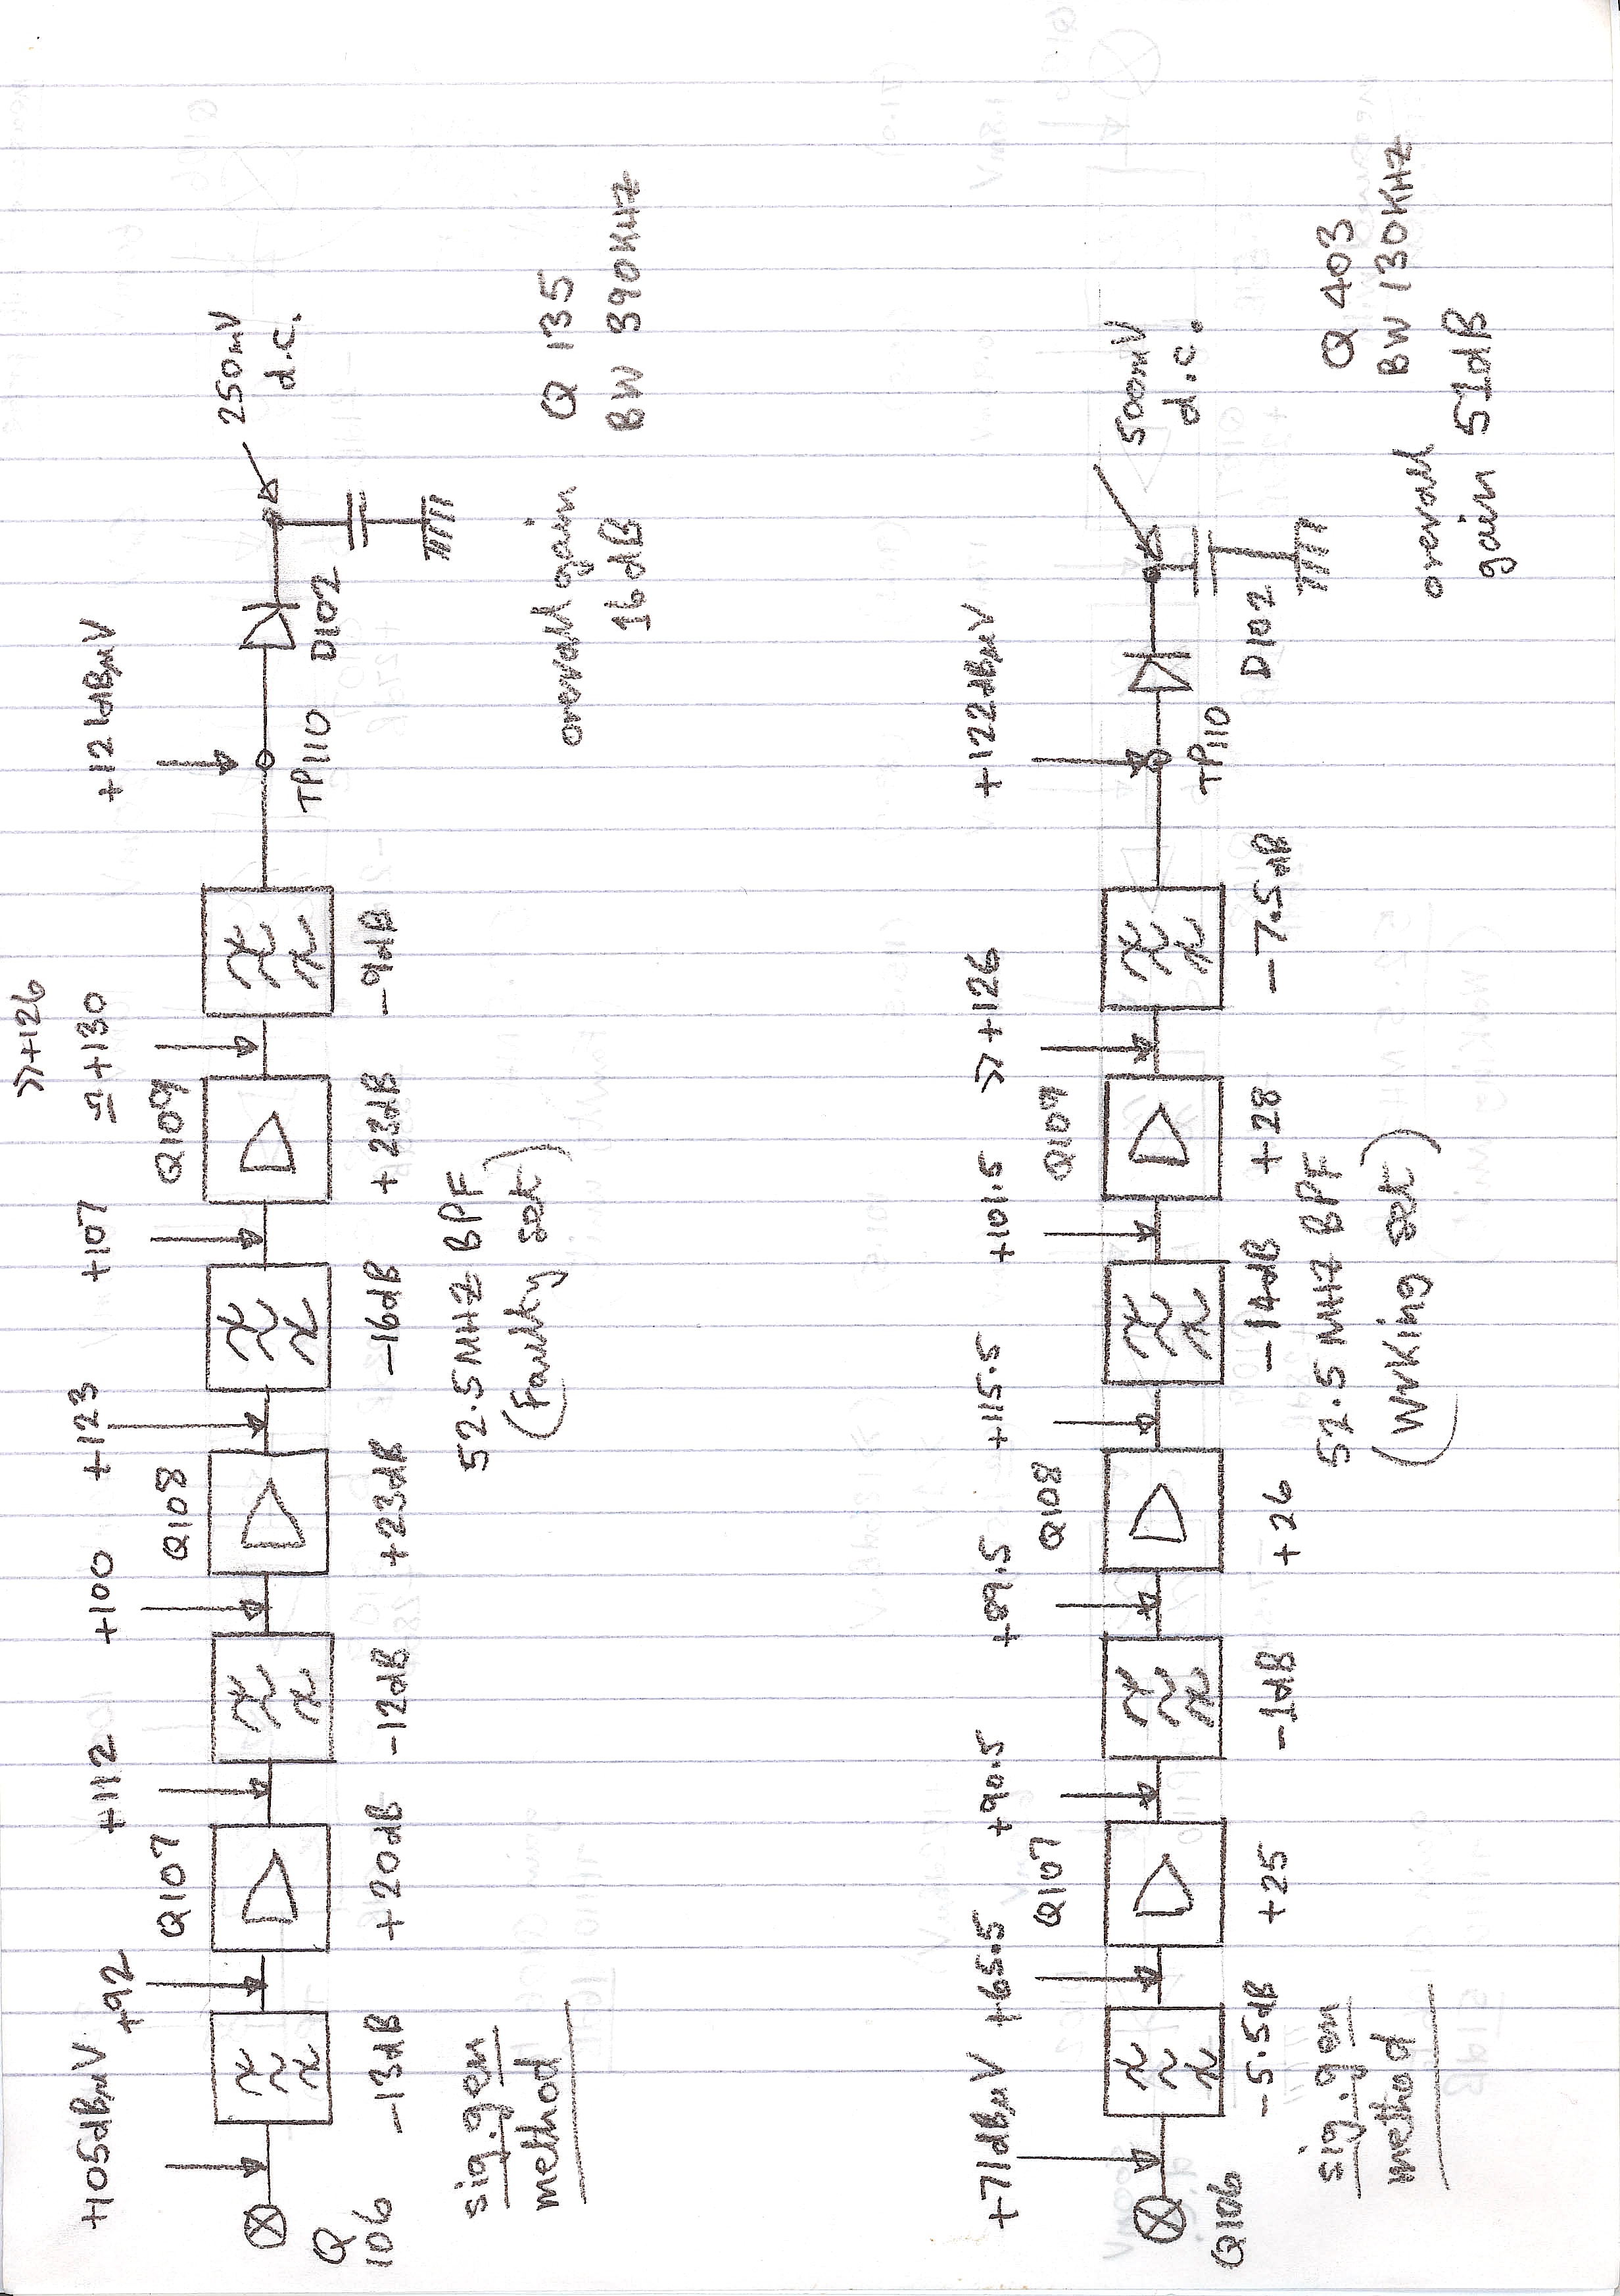 >>+126
+105dBµV +92 +112 +100 +123 +107 ≃+130 +121dBµV
Q107 Q108 Q109
250mV
d.c.
Q
106
TP110 D102
-13dB +20dB -12dB +23dB -16dB +23dB -9dB
sig.gen
method
52.5MHZ BPF
(Faulty set)
overall gain
16dB
Q 135
BW 390KHZ
+71dBµV +65.5 +90.5 +89.5 +115.5 +101.5 >>+126 +122dBµV
Q107 Q108 Q109
500mV
d.c.
Q106
TP110 D102
-5.5dB +25 -1dB +26 -14dB +28 -7.5dB
sig.gen
method
52.5MHZ BPF
(Wrking set)
Q 403
BW 130KHZ
overall
gain 51dB